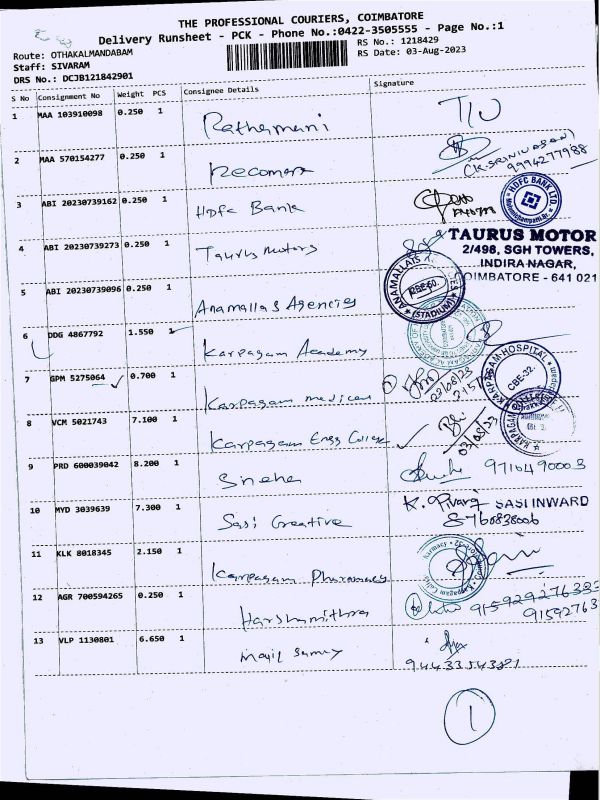 THE PROFESSIONAL COURIERS, COIMBATORE
Delivery Runsheet - PCK - Phone No.:0422-3505555 - Page No.:1
Route: OTHAKALMANDABAM
RS No.: 1218429
Staff: SIVARAM
RS Date: 03-Aug-2023
DRS No.: DCJB121842901
S No Consignment No Weight PCS Consignee Details Signature
1 MAA 103910098 0.250 1 Rathamani T/U
2 MAA 570154277 0.250 1 Recomers (K.SRINIVASAN) 9994277988
3 ABI 20230739162 0.250 1 Hdfc Bank
HDFC BANK LTD.
4 ABI 20230739273 0.250 1 Taurus Motors
TAURUS MOTOR
2/498, SGH TOWERS,
INDIRA NAGAR,
COIMBATORE - 641 021
5 ABI 20230739096 0.250 1 Anamallas Agencies
(STADIUM)
6 DDG 4867792 1.550 1 Karpagam Academy
7 GPM 5275064 0.700 1 Karpagam medical
KARPAGAM HOSPITAL
CBE-32.
8 VCM 5021743 7.100 1 Karpagam Engg College 03/08/23
9 PRD 600039042 8.200 1 Sneha 9710490003
10 MYD 3039639 7.300 1 Sasi Creative SASI INWARD
8760838006
11 KLK 8018345 2.150 1 Karpagam Pharmacy
12 AGR 700594265 0.250 1 Harshamithra
13 VLP 1130801 6.650 1 Mayil Samy
9443354381
1